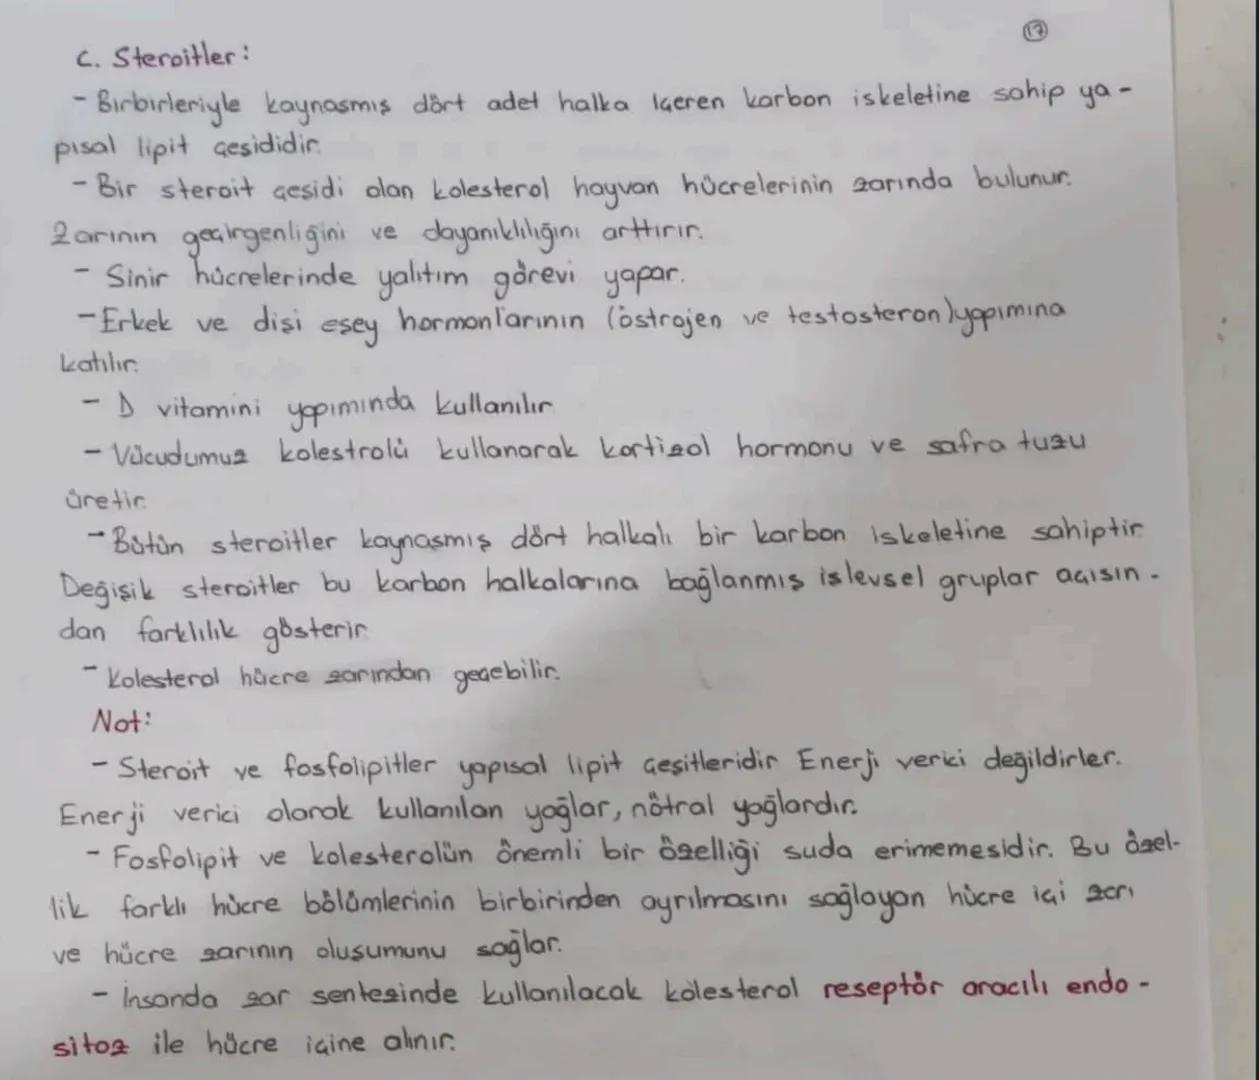 17
C. Steroitler:
- Birbirleriyle kaynaşmış dört adet halka içeren karbon iskeletine sahip ya-
pısal lipit çeşididir.
- Bir steroit çeşidi olan kolesterol hayvan hücrelerinin zarında bulunur.
Zarının geçirgenliğini ve dayanıklılığını arttırır.
- Sinir hücrelerinde yalıtım görevi yapar.
- Erkek ve dişi eşey hormonlarının (östrojen ve testosteron) yapımına
katılır.
- D vitamini yapımında kullanılır.
- Vücudumuz kolestrolü kullanarak kortizol hormonu ve safra tuzu
üretir.
- Bütün steroitler kaynaşmış dört halkalı bir karbon iskeletine sahiptir.
Değişik steroitler bu karbon halkalarına bağlanmış işlevsel gruplar açısın-
dan farklılık gösterir.
- Kolesterol hücre zarından geçebilir.
Not:
- Steroit ve fosfolipitler yapısal lipit çeşitleridir. Enerji verici değildirler.
Enerji verici olarak kullanılan yağlar, nötral yağlardır.
- Fosfolipit ve kolesterolün önemli bir özelliği suda erimemesidir. Bu özel-
lik farklı hücre bölümlerinin birbirinden ayrılmasını sağlayan hücre içi zarı
ve hücre zarının oluşumunu sağlar.
- İnsanda zar sentezinde kullanılacak kolesterol reseptör aracılı endo-
sitoz ile hücre içine alınır.